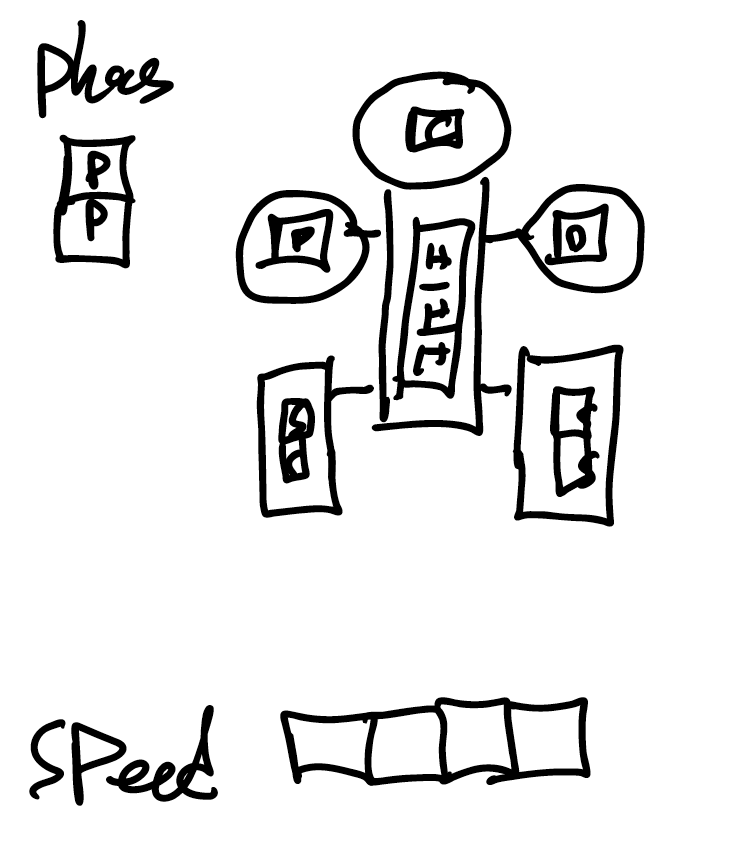 Phas
P
P
C
P
D
H
H
H
S
C
S
S
SPeed